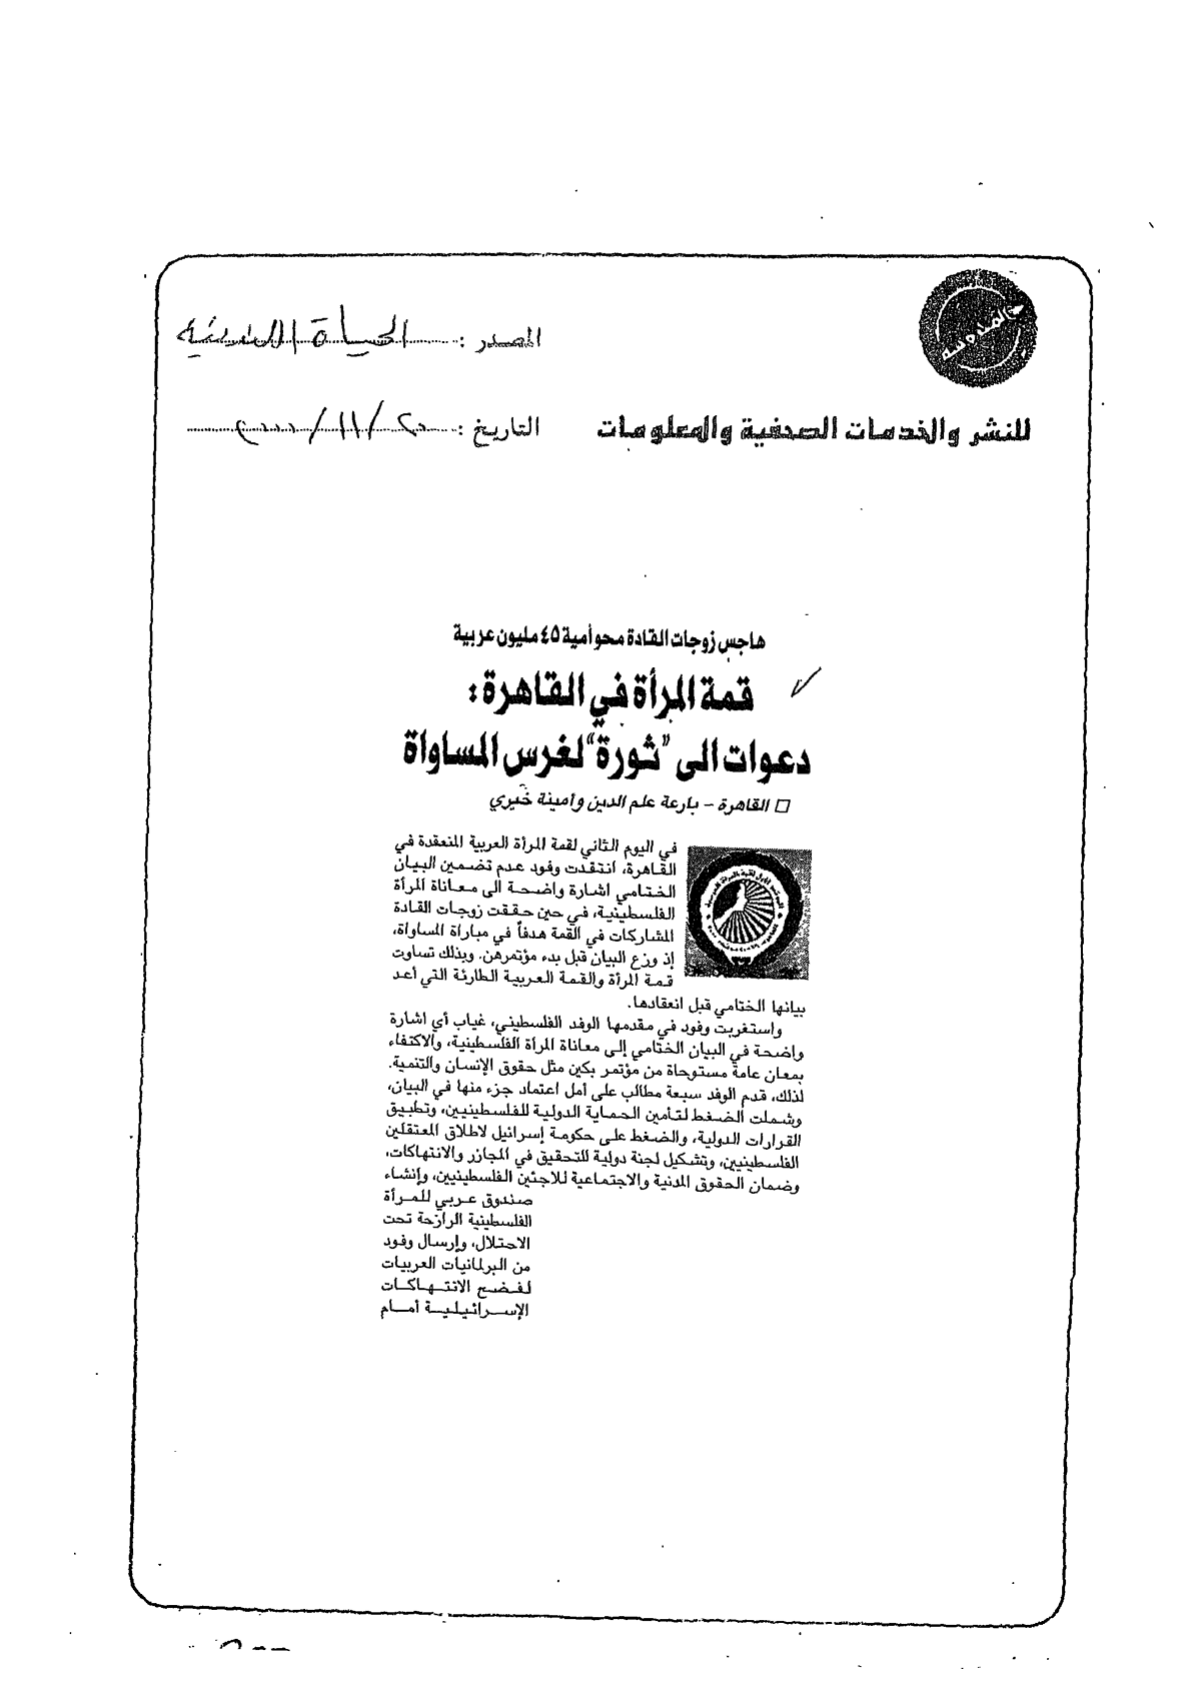 المصدر : الحياة اللندنية
للنشر والخدمات الصحفية والمعلومات
التاريخ : ٢٠/١١/٢٠٠٠
هاجس زوجات القادة محو أمية ٤٥ مليون عربية
قمة المرأة في القاهرة :
دعوات الى "ثورة" لغرس المساواة
□ القاهرة – بارعة علم الدين وأمينة خيري
في اليوم الثاني لقمة المرأة العربية المنعقدة في
القاهرة، انتقدت وفود عدم تضمين البيان
الختامي اشارة واضحة الى معاناة المرأة
الفلسطينية، في حين حققت زوجات القادة
المشاركات في القمة هدفاً في مباراة المساواة،
إذ وزع البيان قبل بدء مؤتمرهن. وبذلك تساوت
قمة المرأة والقمة العربية الطارئة التي أعد
بيانها الختامي قبل انعقادها.
واستغربت وفود في مقدمها الوفد الفلسطيني، غياب أي اشارة
واضحة في البيان الختامي إلى معاناة المرأة الفلسطينية، والاكتفاء
بمعان عامة مستوحاة من مؤتمر بكين مثل حقوق الإنسان والتنمية.
لذلك، قدم الوفد سبعة مطالب على أمل اعتماد جزء منها في البيان،
وشملت الضغط لتأمين الحماية الدولية للفلسطينيين، وتطبيق
القرارات الدولية، والضغط على حكومة إسرائيل لاطلاق المعتقلين
الفلسطينيين، وتشكيل لجنة دولية للتحقيق في المجازر والانتهاكات،
وضمان الحقوق المدنية والاجتماعية للاجئين الفلسطينيين، وإنشاء
صندوق عربي للمرأة
الفلسطينية الرازحة تحت
الاحتلال، وإرسال وفود
من البرلمانيات العربيات
لفضح الانتهاكات
الإسرائيلية أمام